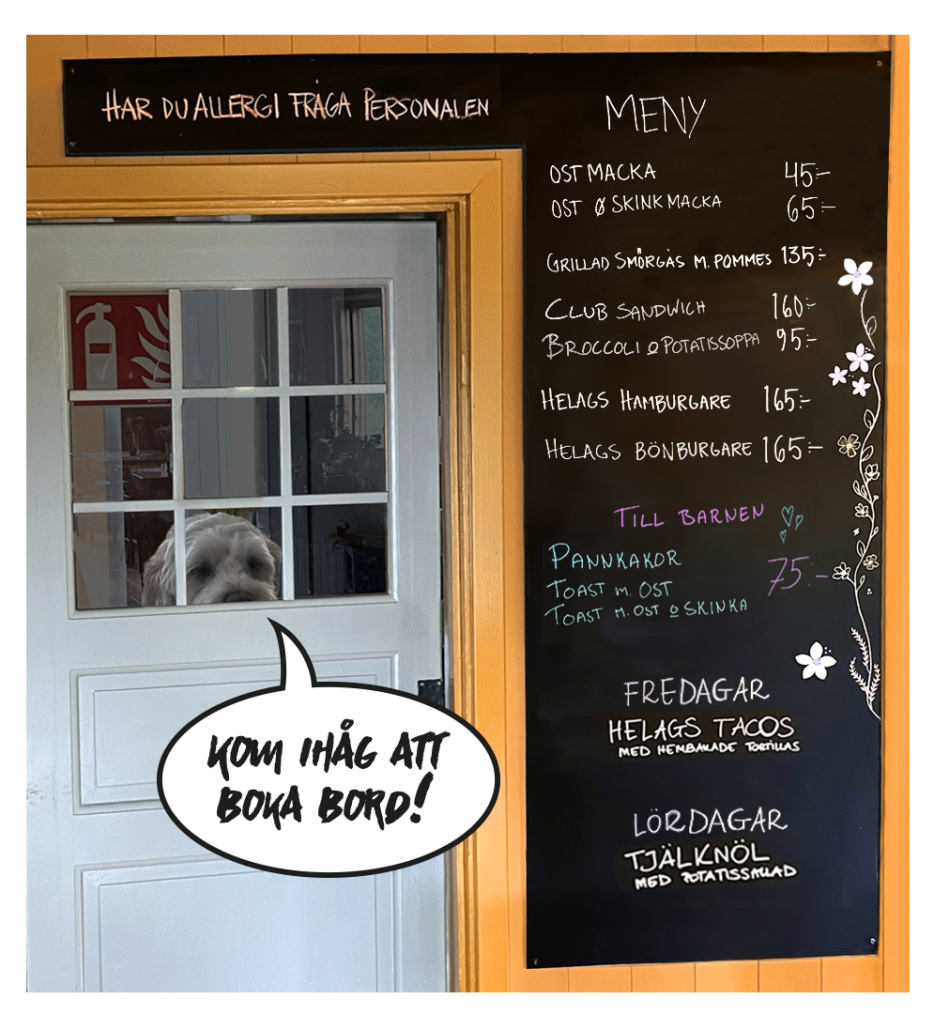 HAR DU ALLERGI FRÅGA PERSONALEN
MENY
OST MACKA 45:-
OST & SKINK MACKA 65:-
GRILLAD SMÖRGÅS M. POMMES 135:-
CLUB SANDWICH 160:-
BROCCOLI o POTATISSOPPA 95:-
HELAGS HAMBURGARE 165:-
HELAGS BÖNBURGARE 165:-
TILL BARNEN
PANNKAKOR 75:-
TOAST M. OST
TOAST M. OST o SKINKA
FREDAGAR
HELAGS TACOS
MED HEMBAKADE TORTILLAS
LÖRDAGAR
TJÄLKNÖL
MED POTATISSALLAD
KOM IHÅG ATT
BOKA BORD!